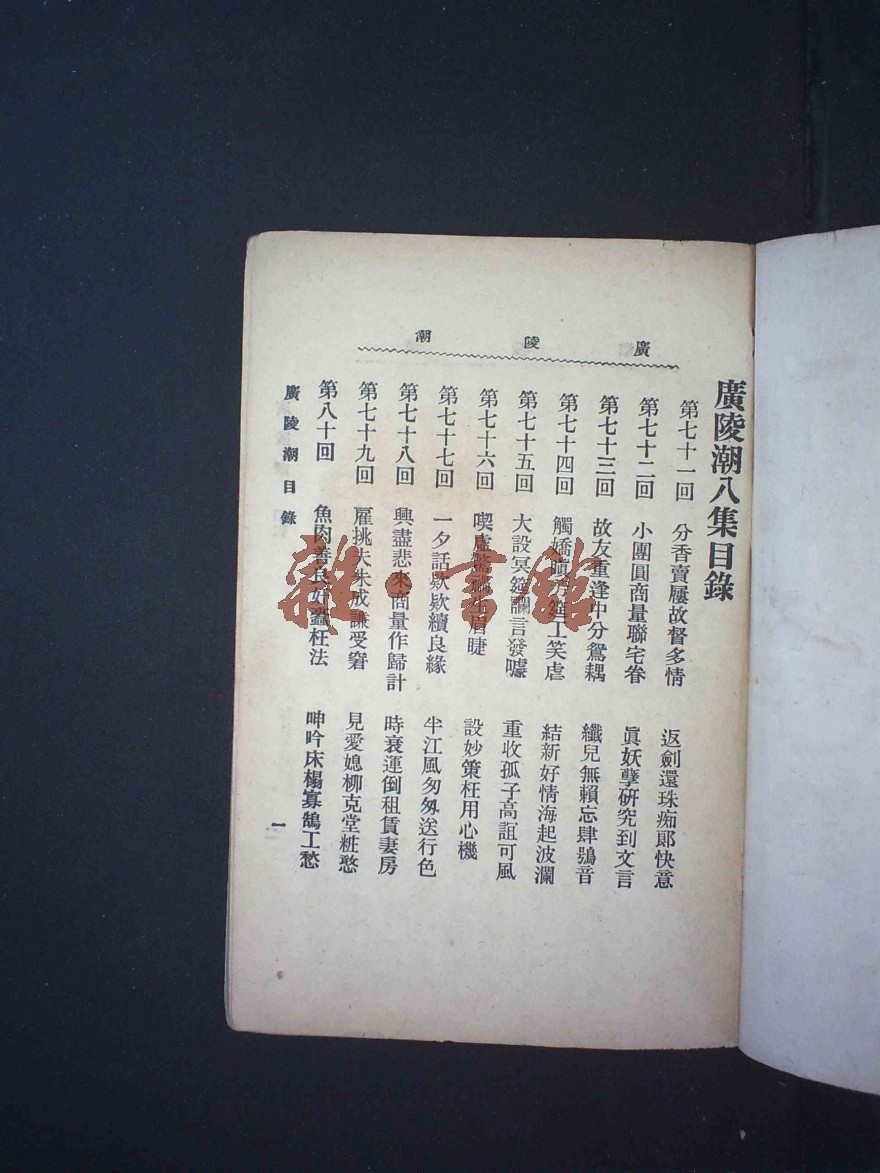 廣陵潮
廣陵潮八集目錄
第七十一回 分香賣屨故督多情 返劍還珠痴郎快意
第七十二回 小團圓商量聯宅眷 眞妖孽研究到文言
第七十三回 故友重逢中分鴛耦 纖兒無賴忘肆鴞音
第七十四回 觸嬌 笑虐 結新好情海起波瀾
第七十五回 大設冥筵讕言發噱 重收孤子高誼可風
第七十六回 喫虛驚 眉睫 設妙策枉用心機
第七十七回 一夕話欵欵續良緣 半江風匆匆送行色
第七十八回 興盡悲來商量作歸計 時衰運倒租賃妻房
第七十九回 雇挑夫朱成謙受窘 見愛媳柳克堂粧憨
第八十回 魚肉善良奸蠹枉法 呻吟床榻寡鵠工愁
廣陵潮目錄
一
雜·書館